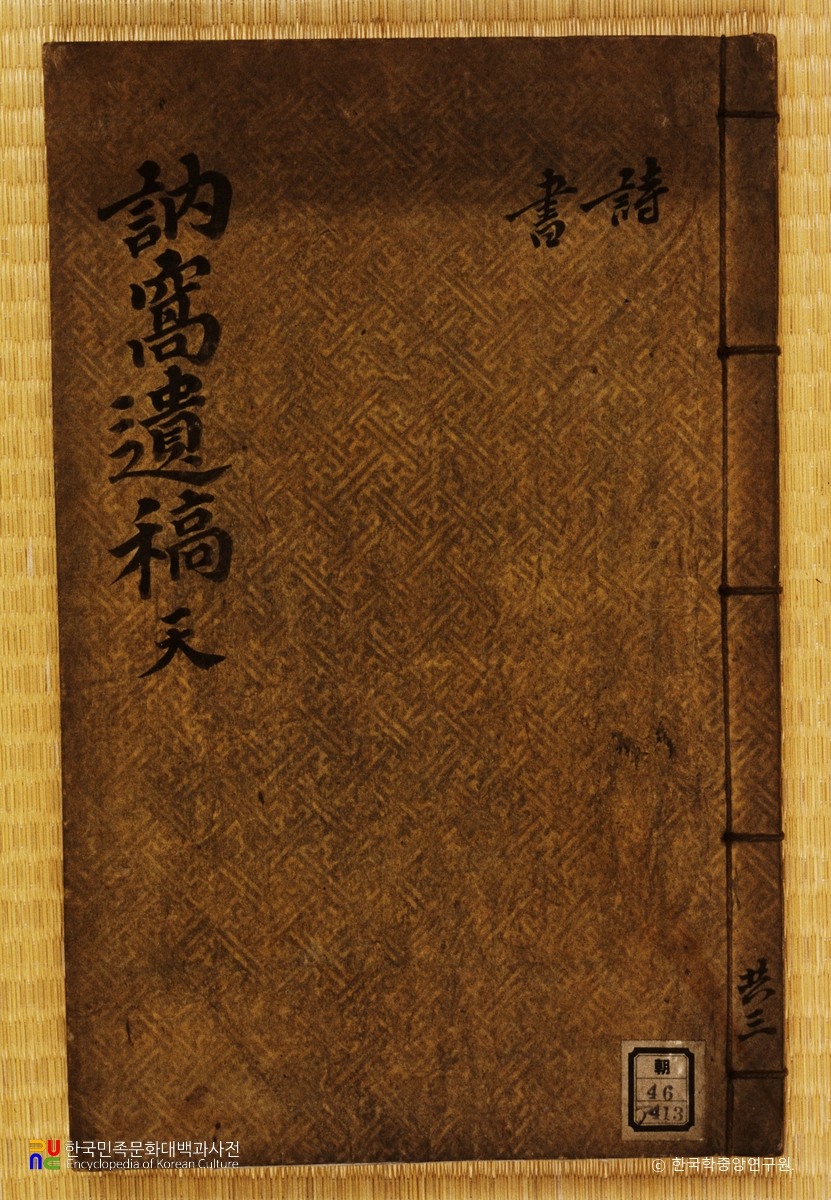 詩
書
訥窩遺稿 天
共三
朝
46
413
한국민족문화대백과사전
Encyclopedia of Korean Culture
© 한국학중앙연구원